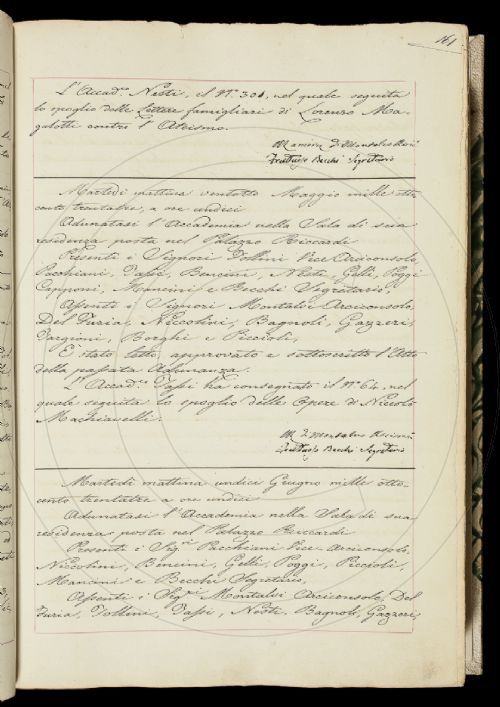 161
L'Accad.o Nesti, il N.o 301, nel quale seguita
lo spoglio delle Lettere famigliari di Lorenzo Ma-
galotti contro l'Ateismo.
Fruttuoso Becchi Segretario
Martedì mattina ventotto Maggio mille otto
cento trentatre, a ore undici
Adunatasi l'Accademia nella Sala di sua
residenza posta nel Palazzo Riccardi
Presenti i Signori Follini Vice-Arciconsolo,
Pucchiani, Tassi, Bencini, Nesti, Gelli, Poggi
Capponi, Mancini e Becchi Segretario;
Assenti i Signori Montalvi Arciconsolo,
Del Furia, Niccolini, Bagnoli, Gazzeri,
Targioni, Borghi e Piccioli,
È stato letto, approvato e sottoscritto l'Atto
della passata Adunanza.
L'Accad.o Tassi ha consegnato il N.o 64, nel
quale seguita lo spoglio delle Opere di Niccolò
Machiavelli.
Fruttuoso Becchi Segretario
Martedì mattina undici Giugno mille otto-
cento trentatre a ore undici
Adunatasi l'Accademia nella Sala di sua
residenza posta nel Palazzo Riccardi
Presenti i Sig.ri Pucchiani Vice-Arciconsolo,
Niccolini, Bencini, Gelli, Poggi, Piccioli,
Mancini e Becchi Segretario,
Assenti i Sig.ri Montalvi Arciconsolo, Del
Furia, Follini, Tassi, Nesti, Bagnoli, Gazzeri,